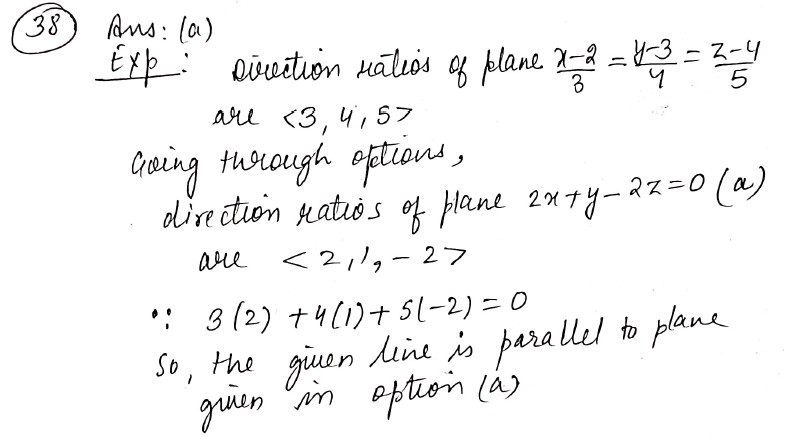 38 Ans: (a)
Exp: Direction ratios of plane x-2/3 = y-3/4 = z-4/5
are <3, 4, 5>
Going through options,
direction ratios of plane 2x+y-2z=0 (a)
are <2, 1, -2>
∵ 3(2) + 4(1) + 5(-2) = 0
So, the given line is parallel to plane
given in option (a)